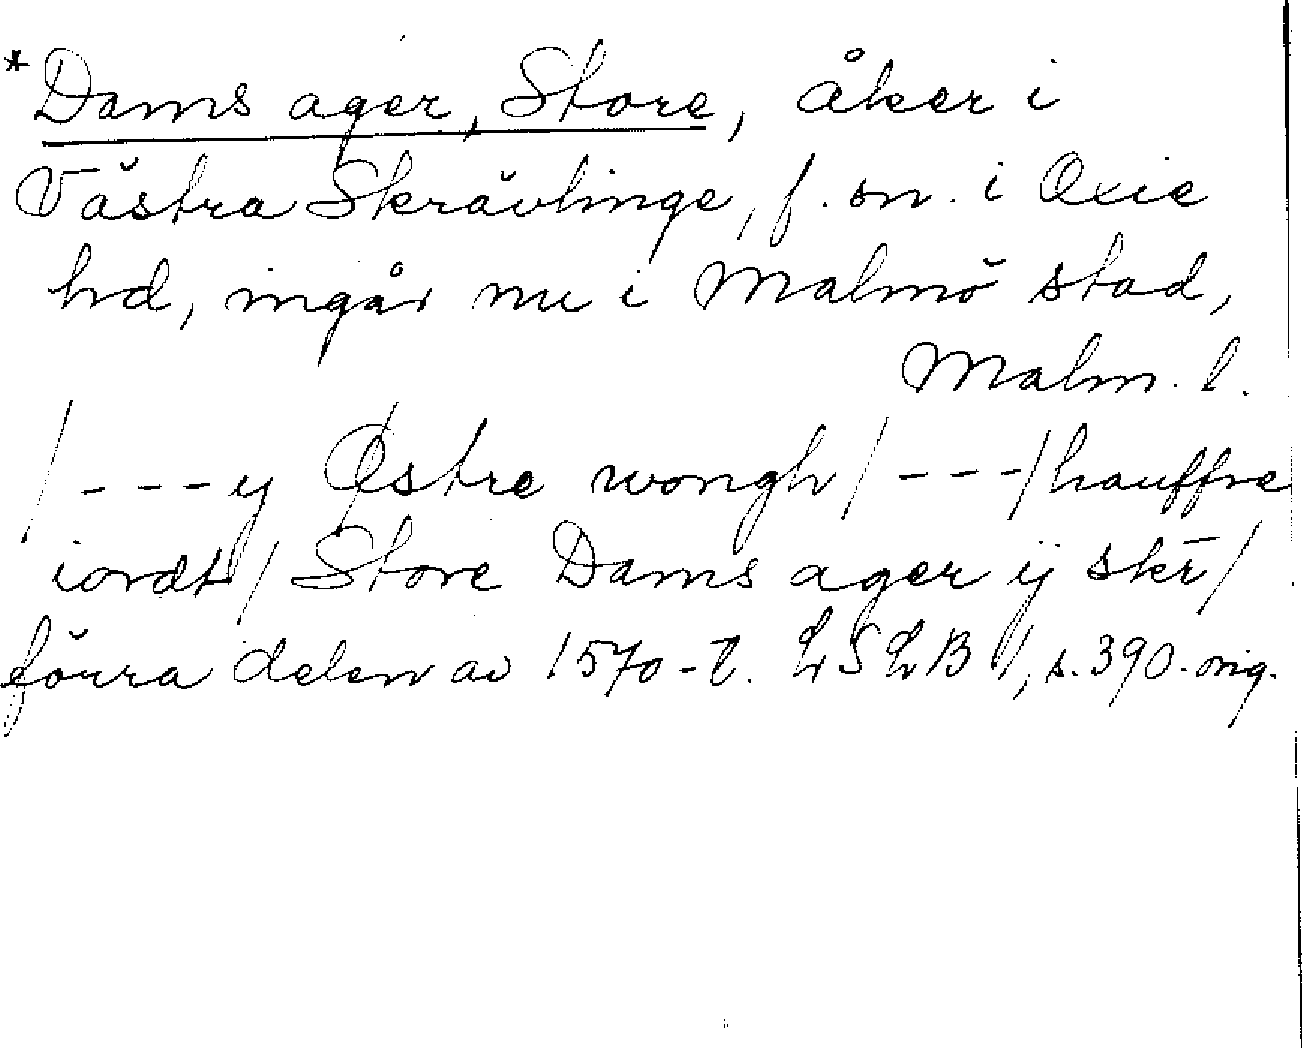 *Dams ager, Store, åker i
Västra Skrävlinge, f. sn. i Oxie
hd, ingår nu i Malmö stad,
Malm. l.
/---y Østre wongh/---/hauffre
iordt/ Store Dams ager ij skr̄/
förra delen av 1570-t. LSLB 1, s. 390. orig.